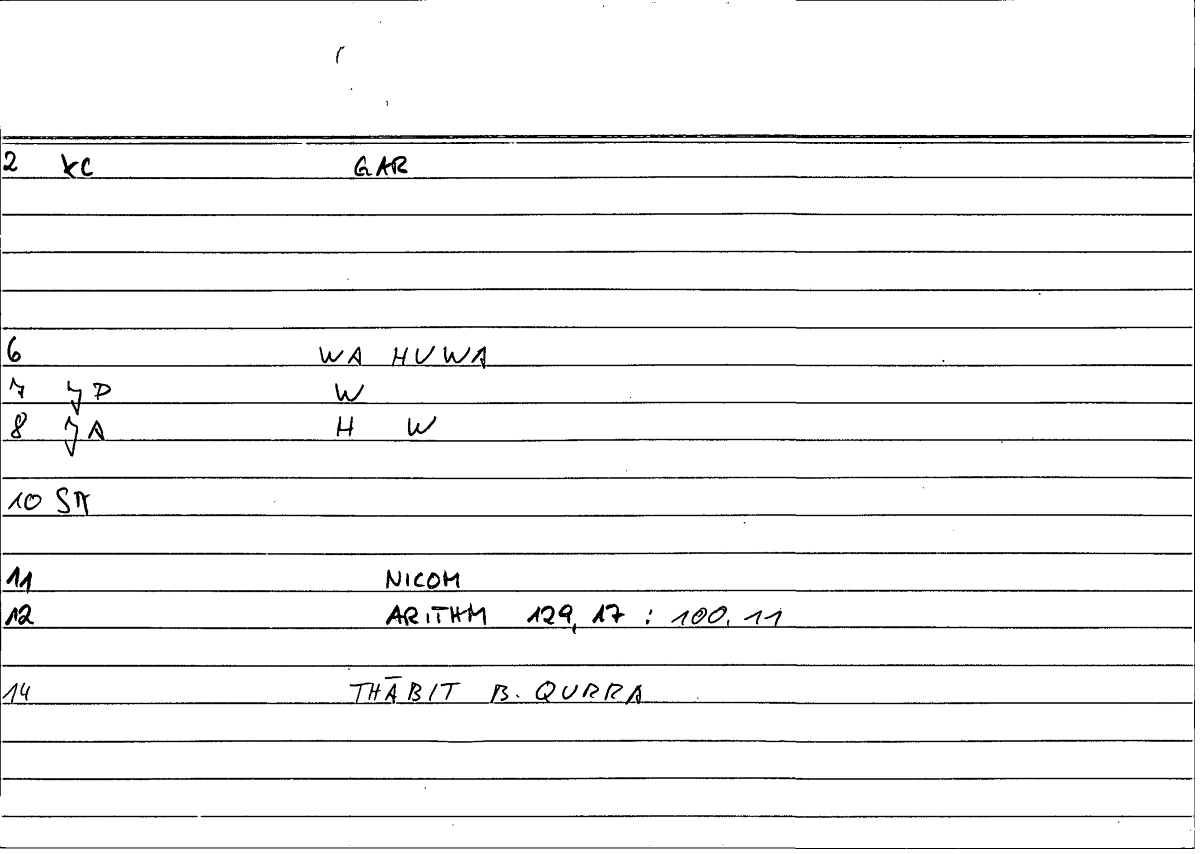 2 KC GAR
6 WA HUWA
7 JD W
8 JA H W
10 ST
11 NICOM
12 ARITHM 129, 17 : 100. 11
14 THĀBIT B. QURRA